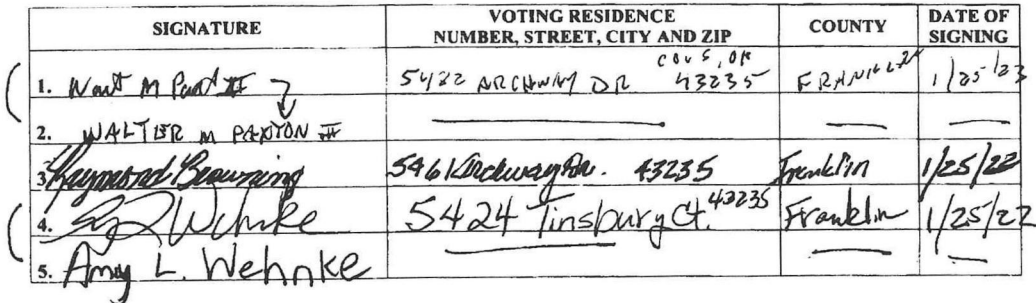 SIGNATURE VOTING RESIDENCE NUMBER, STREET, CITY AND ZIP COUNTY DATE OF SIGNING
1. 5422 ARCHWAY DR COUS, OH 43235 1/25/23
2. WALTER M PAXTON III
3. Raymond Browning 43235 Franklin 1/25/22
4. Wehnke 5424 Tinsbury Ct. 43235 Franklin 1/25/22
5. Amy L. Wehnke